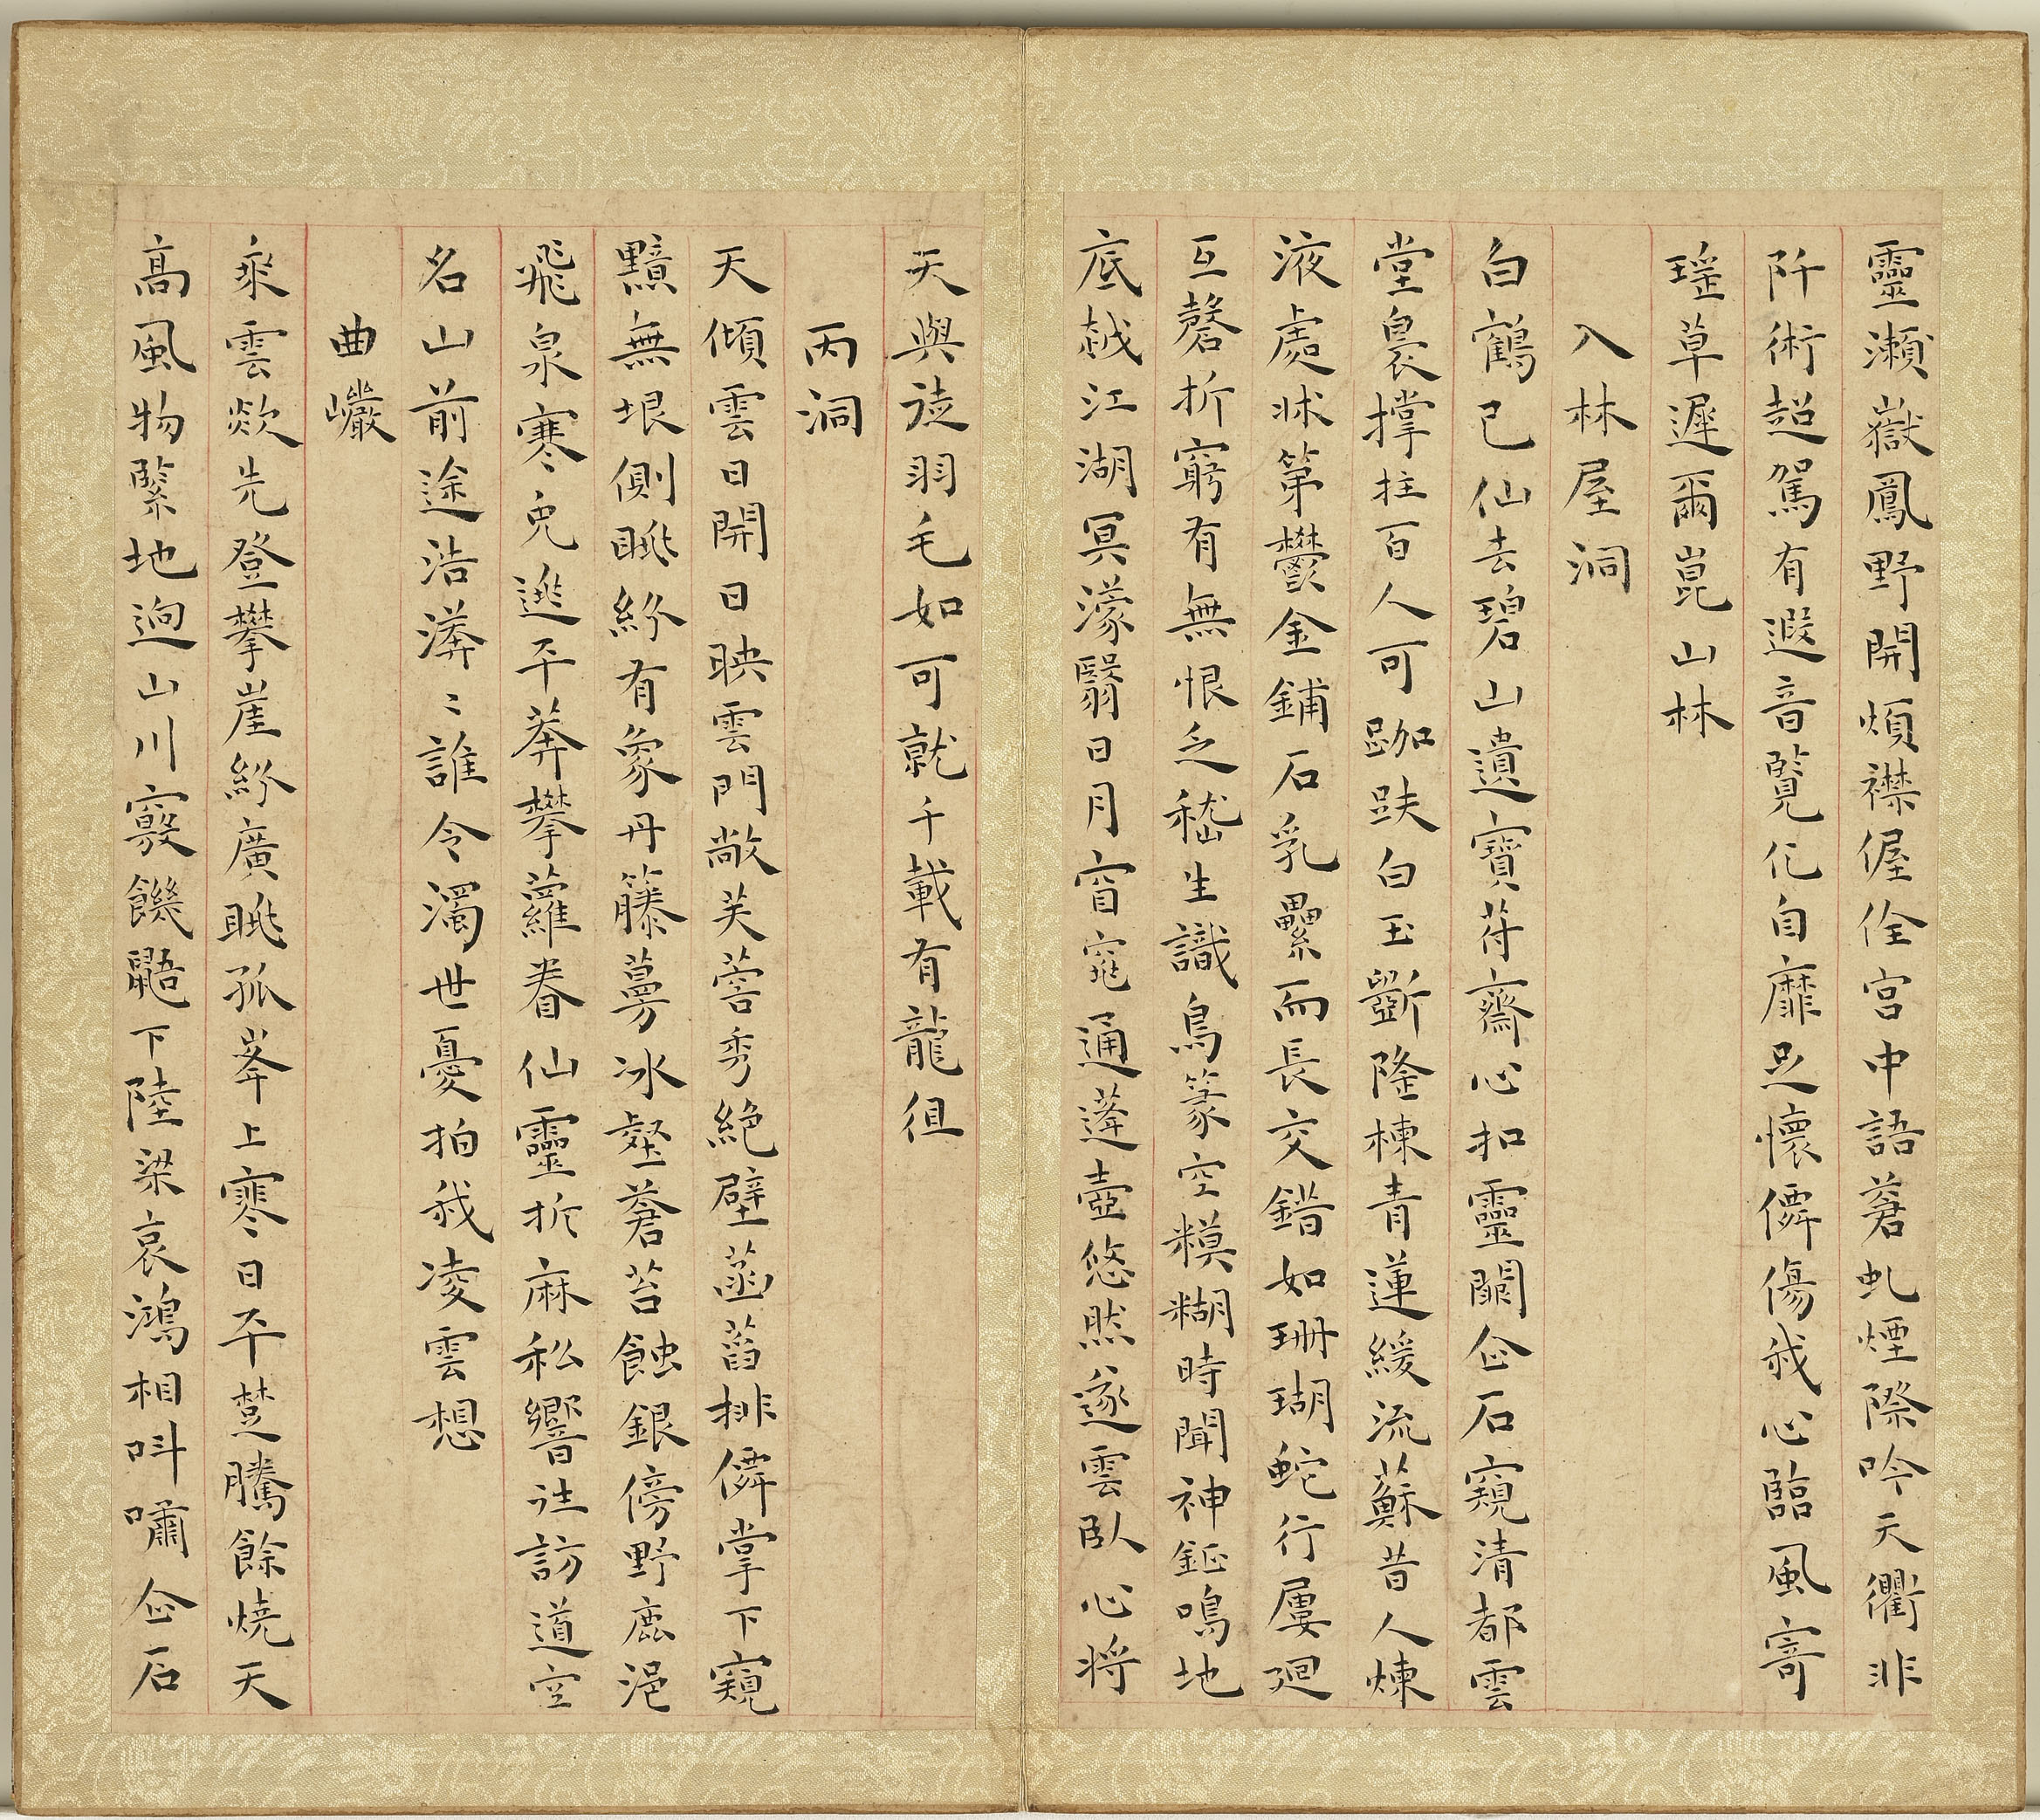 靈瀨嶽鳳野開煩襟偓佺宮中語蒼虬煙際吟天衢非
阡術超駕有遐音覽化自靡足懷僊傷我心臨風寄
瑤草遲爾崑山林
入林屋洞
白鶴已仙去碧山遺寶苻齋心扣靈關企石窺清都雲
堂裊撐拄百人可跏趺白玉斲隆棟青蓮緩流蘇昔人煉
液處牀第鬱金鋪石乳纍而長交錯如珊瑚蛇行屢迴
互磬折窮有無恨乏嵇生識鳥篆空糢糊時聞神鉦鳴地
底越江湖冥濛翳日月窅窕通蓬壺悠然遂雲臥心將
天與徒羽毛如可就千載有龍徂
丙洞
天傾雲日開日映雲門敞芙蓉秀絕壁菡萏排僊掌下窺
黯無垠側眺紛有象丹籐蔓冰壑蒼苔蝕銀傍野鹿浥
飛泉寒兔逃平莽攀蘿眷仙靈折麻私響往訪道空
名山前途浩漭〻誰令濁世憂拍我凌雲想
曲巖
乘雲欻先登攀崖紛廣眺孤峯上寒日平楚騰餘燒天
高風物緊地迥山川窾饑鼯下陸梁哀鴻相叫嘯企石